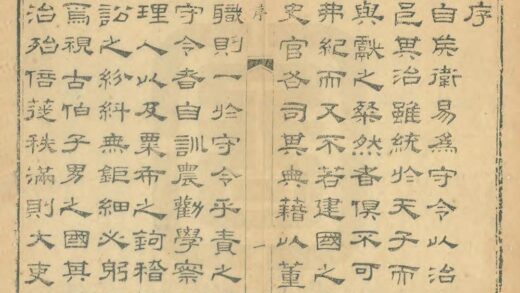 序
自矦衛易爲守令以治
邑其治雖統於天子而
與獻之粲然者俱不可
弗紀而又不若建國之
史官各司其典藉以董
序
一
職則一於守令乎責之
守令者自訓農勸學察
理人以及粟布之鉤稽
訟之紛糾無鉅細必躬
焉視古伯子男之國其
治殆倍蓰秩滿則大吏